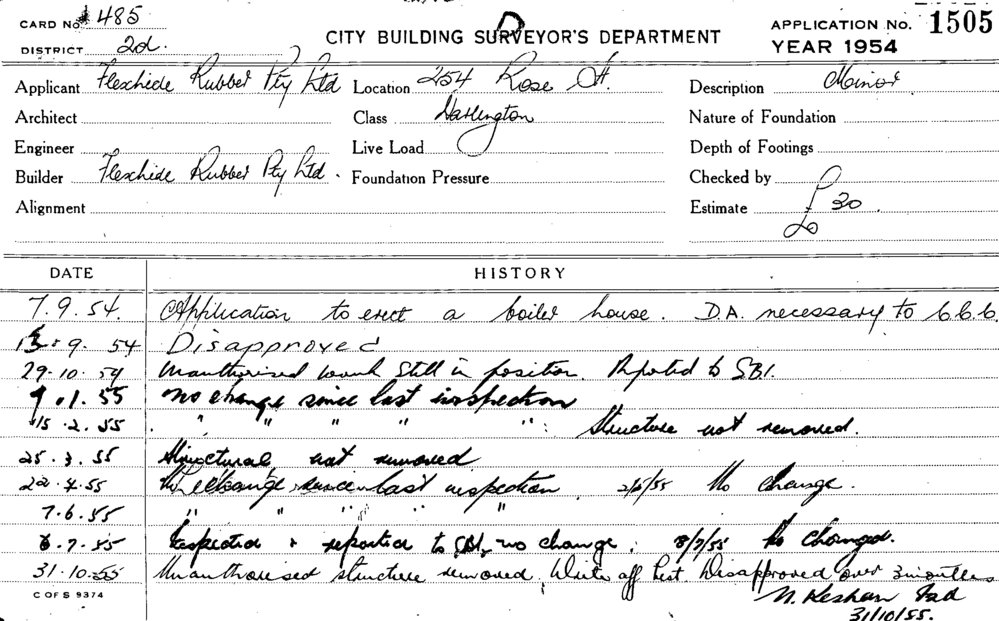 CARD No. 485
DISTRICT 2d.
CITY BUILDING SURVEYOR'S DEPARTMENT
APPLICATION No. 1505
YEAR 1954
Applicant Flexhide Rubber Pty Ltd Location 254 Rose St. Description Minor
Architect Class Darlington Nature of Foundation
Engineer Live Load Depth of Footings
Builder Flexhide Rubber Pty Ltd. Foundation Pressure Checked by
Alignment Estimate £30.
DATE HISTORY
7.9.54. Application to erect a boiler house. D.A. necessary to C.C.C.
13.9.54 Disapproved
29.10.54 Unauthorised work still in position. Reported to SBI.
9.1.55 No change since last inspection
15.2.55 " " " " " : Structure not removed.
25.3.55 Structural not removed
22.4.55 No change since last inspection. 2/6/55 No change.
7.6.55 " " " " "
6.7.55 Inspected & reported to SBI, no change. 8/7/55 No Changed.
31.10.55 Unauthorised structure removed. Write off list. Disapproved over 3 months
31/10/55.
C OF S 9374